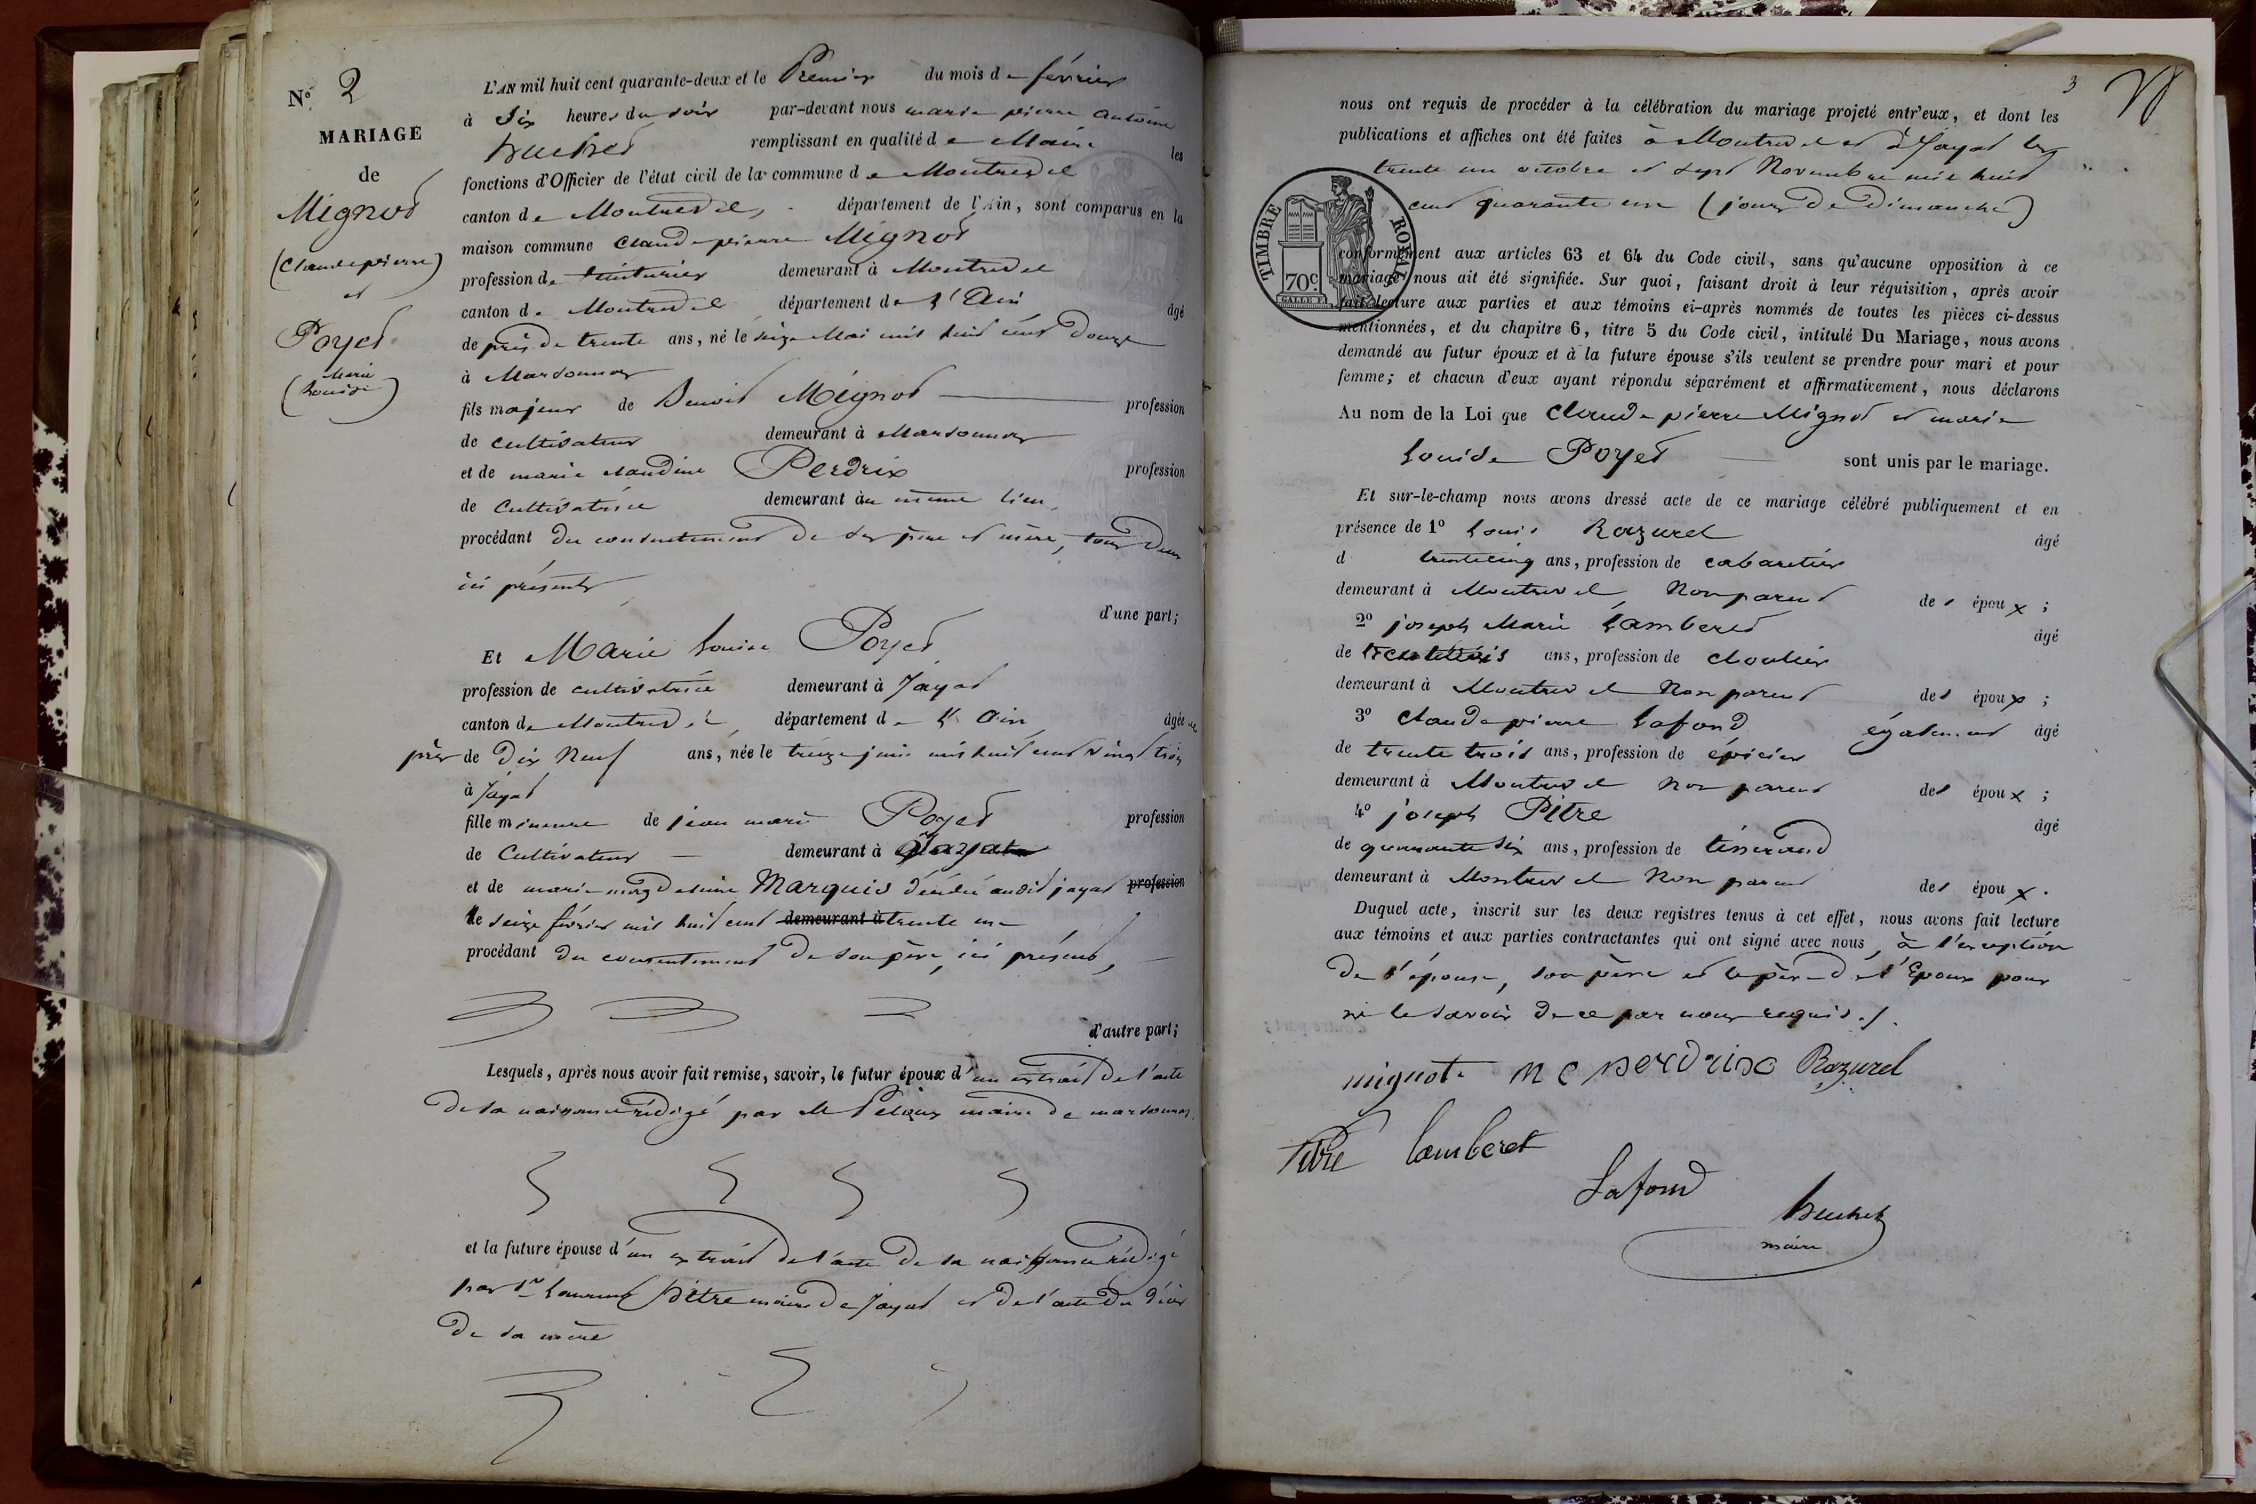 N° 2
MARIAGE
de
Mignot
(Claude pierre)
et
Poyet
(Marie
Louise)
L'AN mil huit cent quarante-deux et le Premier du mois de février
à Six heures du soir par-devant nous marie pierre antoine
Truchet remplissant en qualité de Maire les
fonctions d'Officier de l'état civil de la commune de Montrevel
canton de Montrevel, département de l'Ain, sont comparus en la
maison commune Claude pierre Mignot
profession de teinturier demeurant à Montrevel
canton de Montrevel département de l'Ain âgé
de près de trente ans, né le seize Mai mil huit cent Douze
à Marsonnas
fils majeur de Benoit Mignot profession
de cultivateur demeurant à Marsonnas
et de marie claudine Perdrix profession
de Cultivatrice demeurant au même lieu,
procédant du consentement de ses père et mère, tous Deux
ici présents
d'une part;
Et Marie Louise Poyet
profession de cultivatrice demeurant à Jayat
canton de Montrevel, département de l'Ain âgée de
près de Dix Neuf ans, née le treize juin mil huit cent vingt trois
à Jayat
fille mineure de jean marie Poyet profession
de Cultivateur demeurant à Jayat
et de marie magdeleine Marquis décédée audit jayat profession
le seize février mil huit cent demeurant à trente un
procédant du consentement de son père, ici présent,
d'autre part;
Lesquels, après nous avoir fait remise, savoir, le futur époux d'un extrait de l'acte
de sa naissance rédigé par Mr Peloux maire de marsonnas
et la future épouse d'un extrait de l'acte de sa naissance rédigé
par Sr Laurent Pitre maire de Jayat et de l'acte du décès
de sa mère
3
nous ont requis de procéder à la célébration du mariage projeté entr'eux, et dont les
publications et affiches ont été faites à Montrevel et à Jayat les
trente un octobre et sept Novembre mil huit
cent quarante un (jours de Dimanche)
TIMBRE ROYAL
70c
conformément aux articles 63 et 64 du Code civil, sans qu'aucune opposition à ce
mariage nous ait été signifiée. Sur quoi, faisant droit à leur réquisition, après avoir
fait lecture aux parties et aux témoins ci-après nommés de toutes les pièces ci-dessus
mentionnées, et du chapitre 6, titre 5 du Code civil, intitulé Du Mariage, nous avons
demandé au futur époux et à la future épouse s'ils veulent se prendre pour mari et pour
femme; et chacun d'eux ayant répondu séparément et affirmativement, nous déclarons
Au nom de la Loi que Claude pierre Mignot et marie
Louise Poyet sont unis par le mariage.
Et sur-le-champ nous avons dressé acte de ce mariage célébré publiquement et en
présence de 1° Louis Razurel âgé
d trente cinq ans, profession de cabaretier
demeurant à Montrevel, Non parent des époux;
2° joseph Marie Lamberet âgé
de trente trois ans, profession de cloutier
demeurant à Montrevel Non parent des époux;
3° Claude pierre Lafond également âgé
de trente trois ans, profession de épicier
demeurant à Montrevel Non parent des époux;
4° joseph Pitre âgé
de quarante Six ans, profession de tisserand
demeurant à Montrevel Non parent des époux.
Duquel acte, inscrit sur les deux registres tenus à cet effet, nous avons fait lecture
aux témoins et aux parties contractantes qui ont signé avec nous, à l'exception
De l'épouse, son père et le père de l'Epoux pour
ne le savoir de ce par nous requis./.
mignot m c perdrix Razurel
Pitre lamberet
Lafond
Truchet
maire